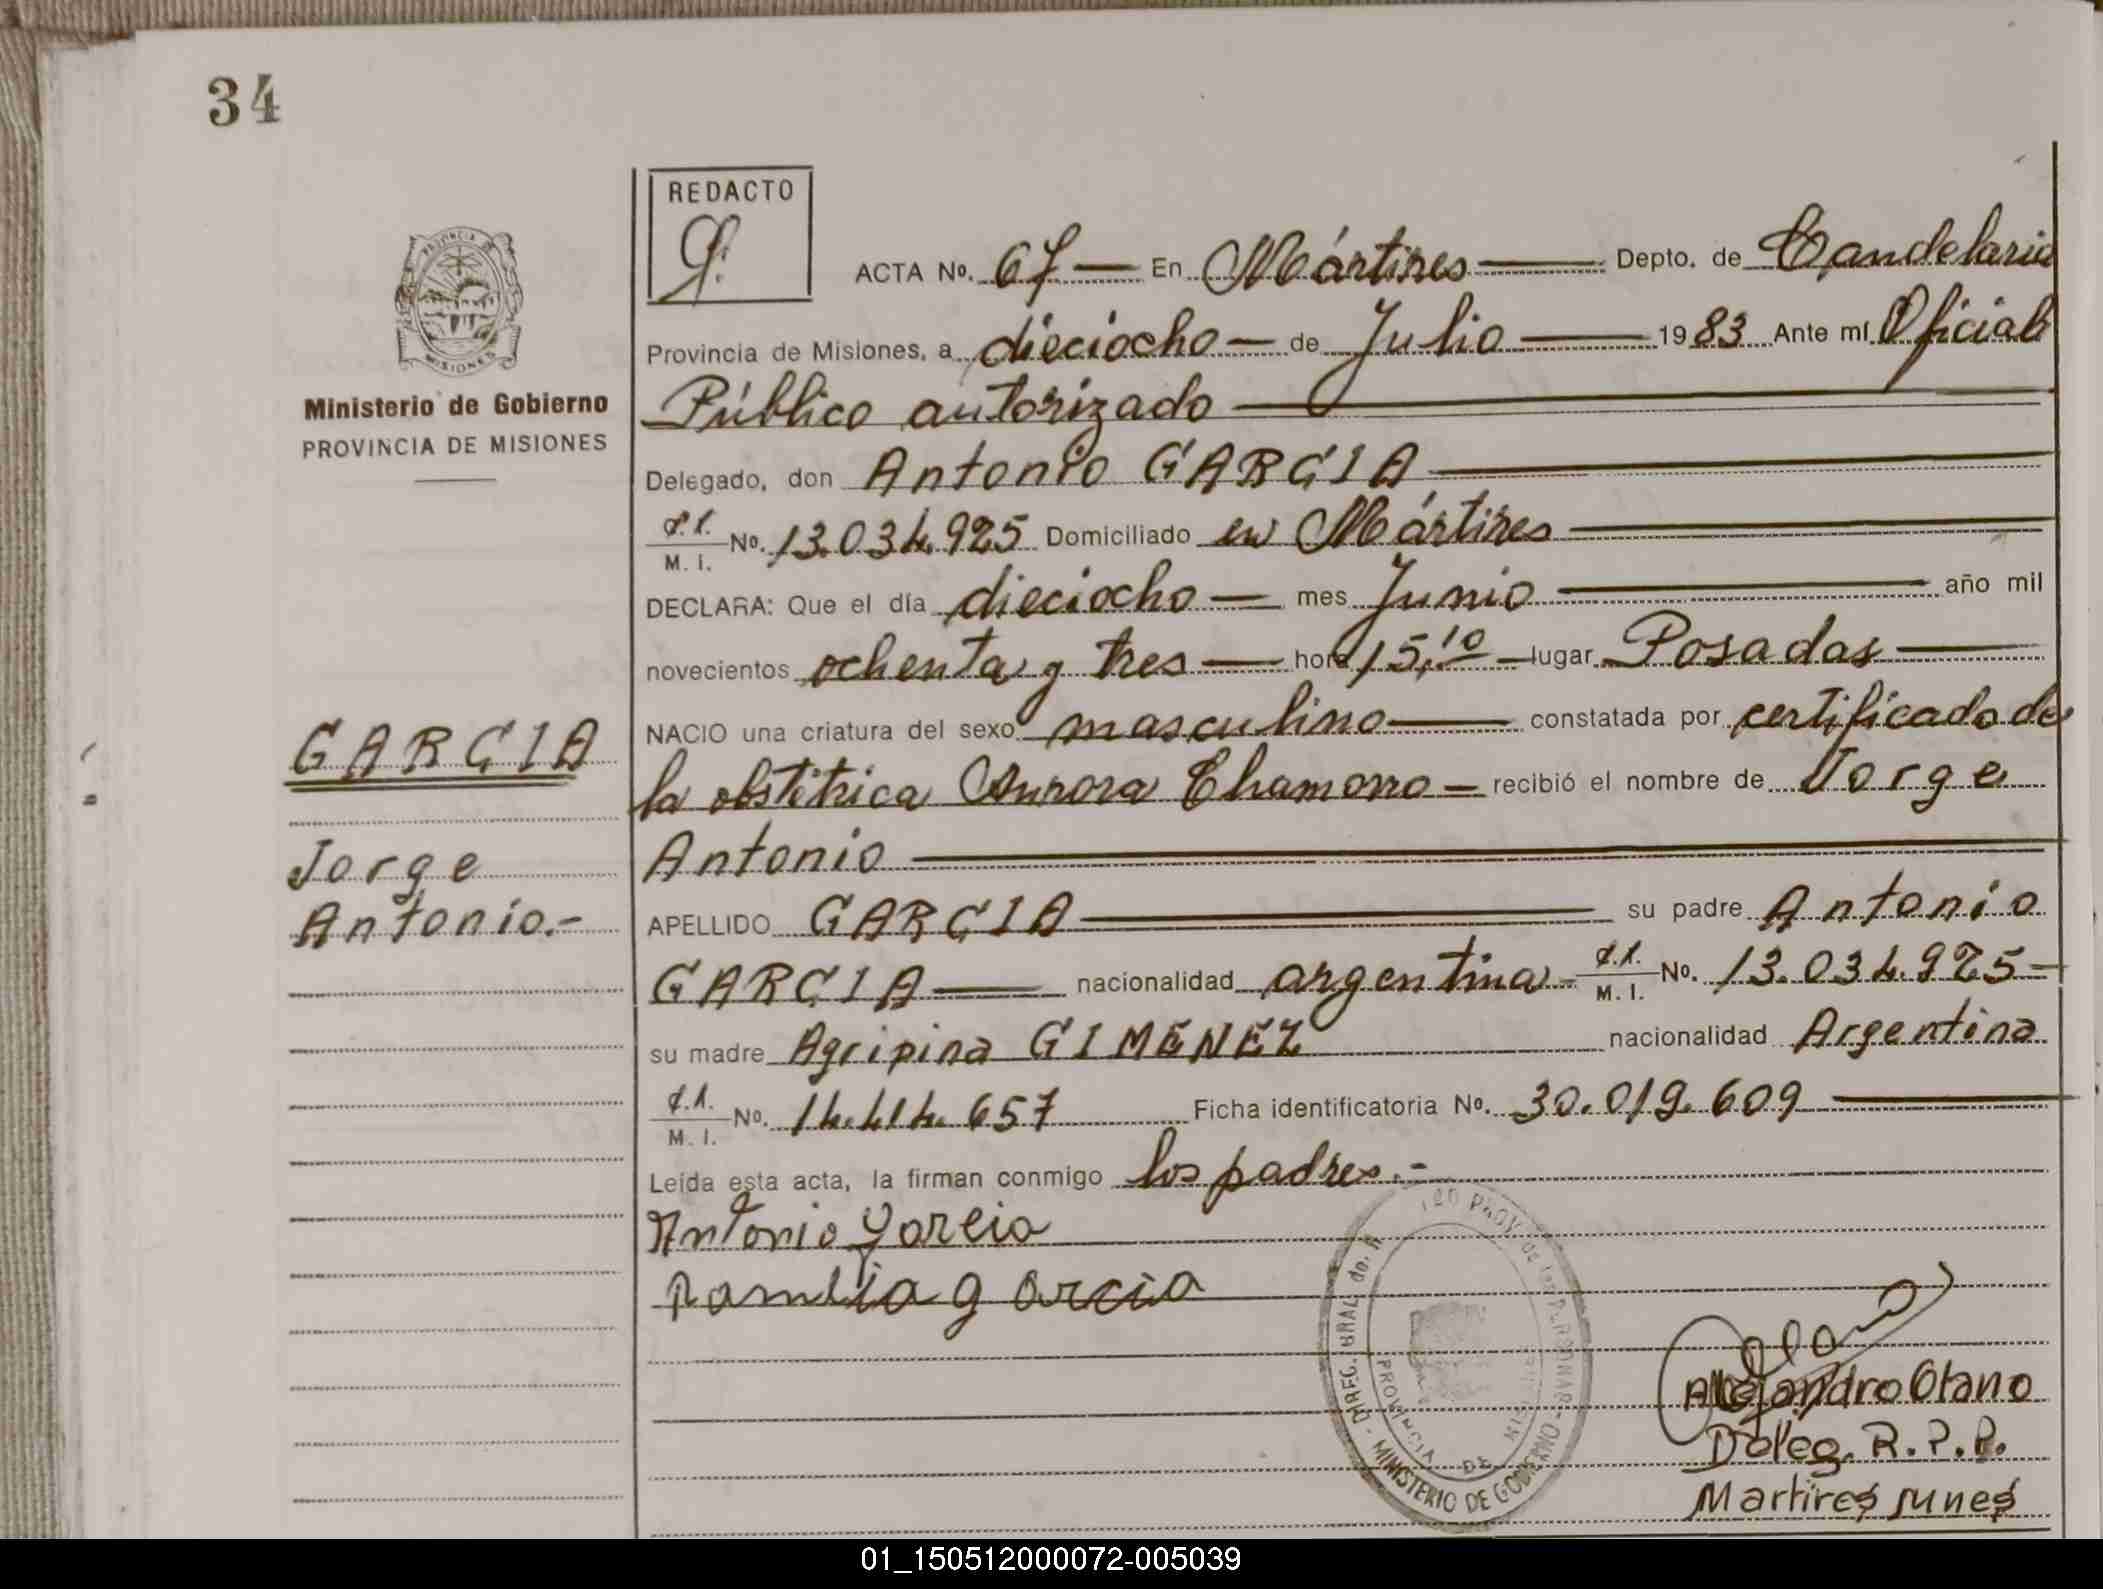 34
REDACTO
ACTA No. 67 — En Mártires — Depto. de Candelaria
Provincia de Misiones, a dieciocho — de Julio — 1983 Ante mí Oficial
Público autorizado
Ministerio de Gobierno
PROVINCIA DE MISIONES
Delegado, don Antonio GARCIA
M. I. No. 13.034.925 Domiciliado en Mártires
DECLARA: Que el día dieciocho — mes Junio — año mil
novecientos ochenta y tres — hora 15,10 — lugar Posadas
NACIO una criatura del sexo masculino — constatada por certificado de
la obstétrica Aurora Chamorro — recibió el nombre de Jorge
Antonio
GARCIA
Jorge
Antonio.-
APELLIDO GARCIA — su padre Antonio
GARCIA — nacionalidad argentina - M. I. No. 13.034.925 -
su madre Agripina GIMENEZ nacionalidad Argentina
M. I. No. 14.414.657 Ficha identificatoria No. 30.019.609
Leída esta acta, la firman conmigo los padres.-
Antonio Garcia
garcia
PROVINCIA DE MISIONES
MINISTERIO DE GOBIERNO
Alejandro Otano
Deleg. R.P.P.
Martires
01_150512000072-005039